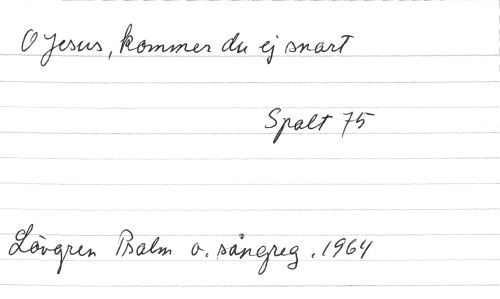 O Jesus, kommer du ej snart
Spalt 75
Lövgren Psalm o. sångreg. 1964